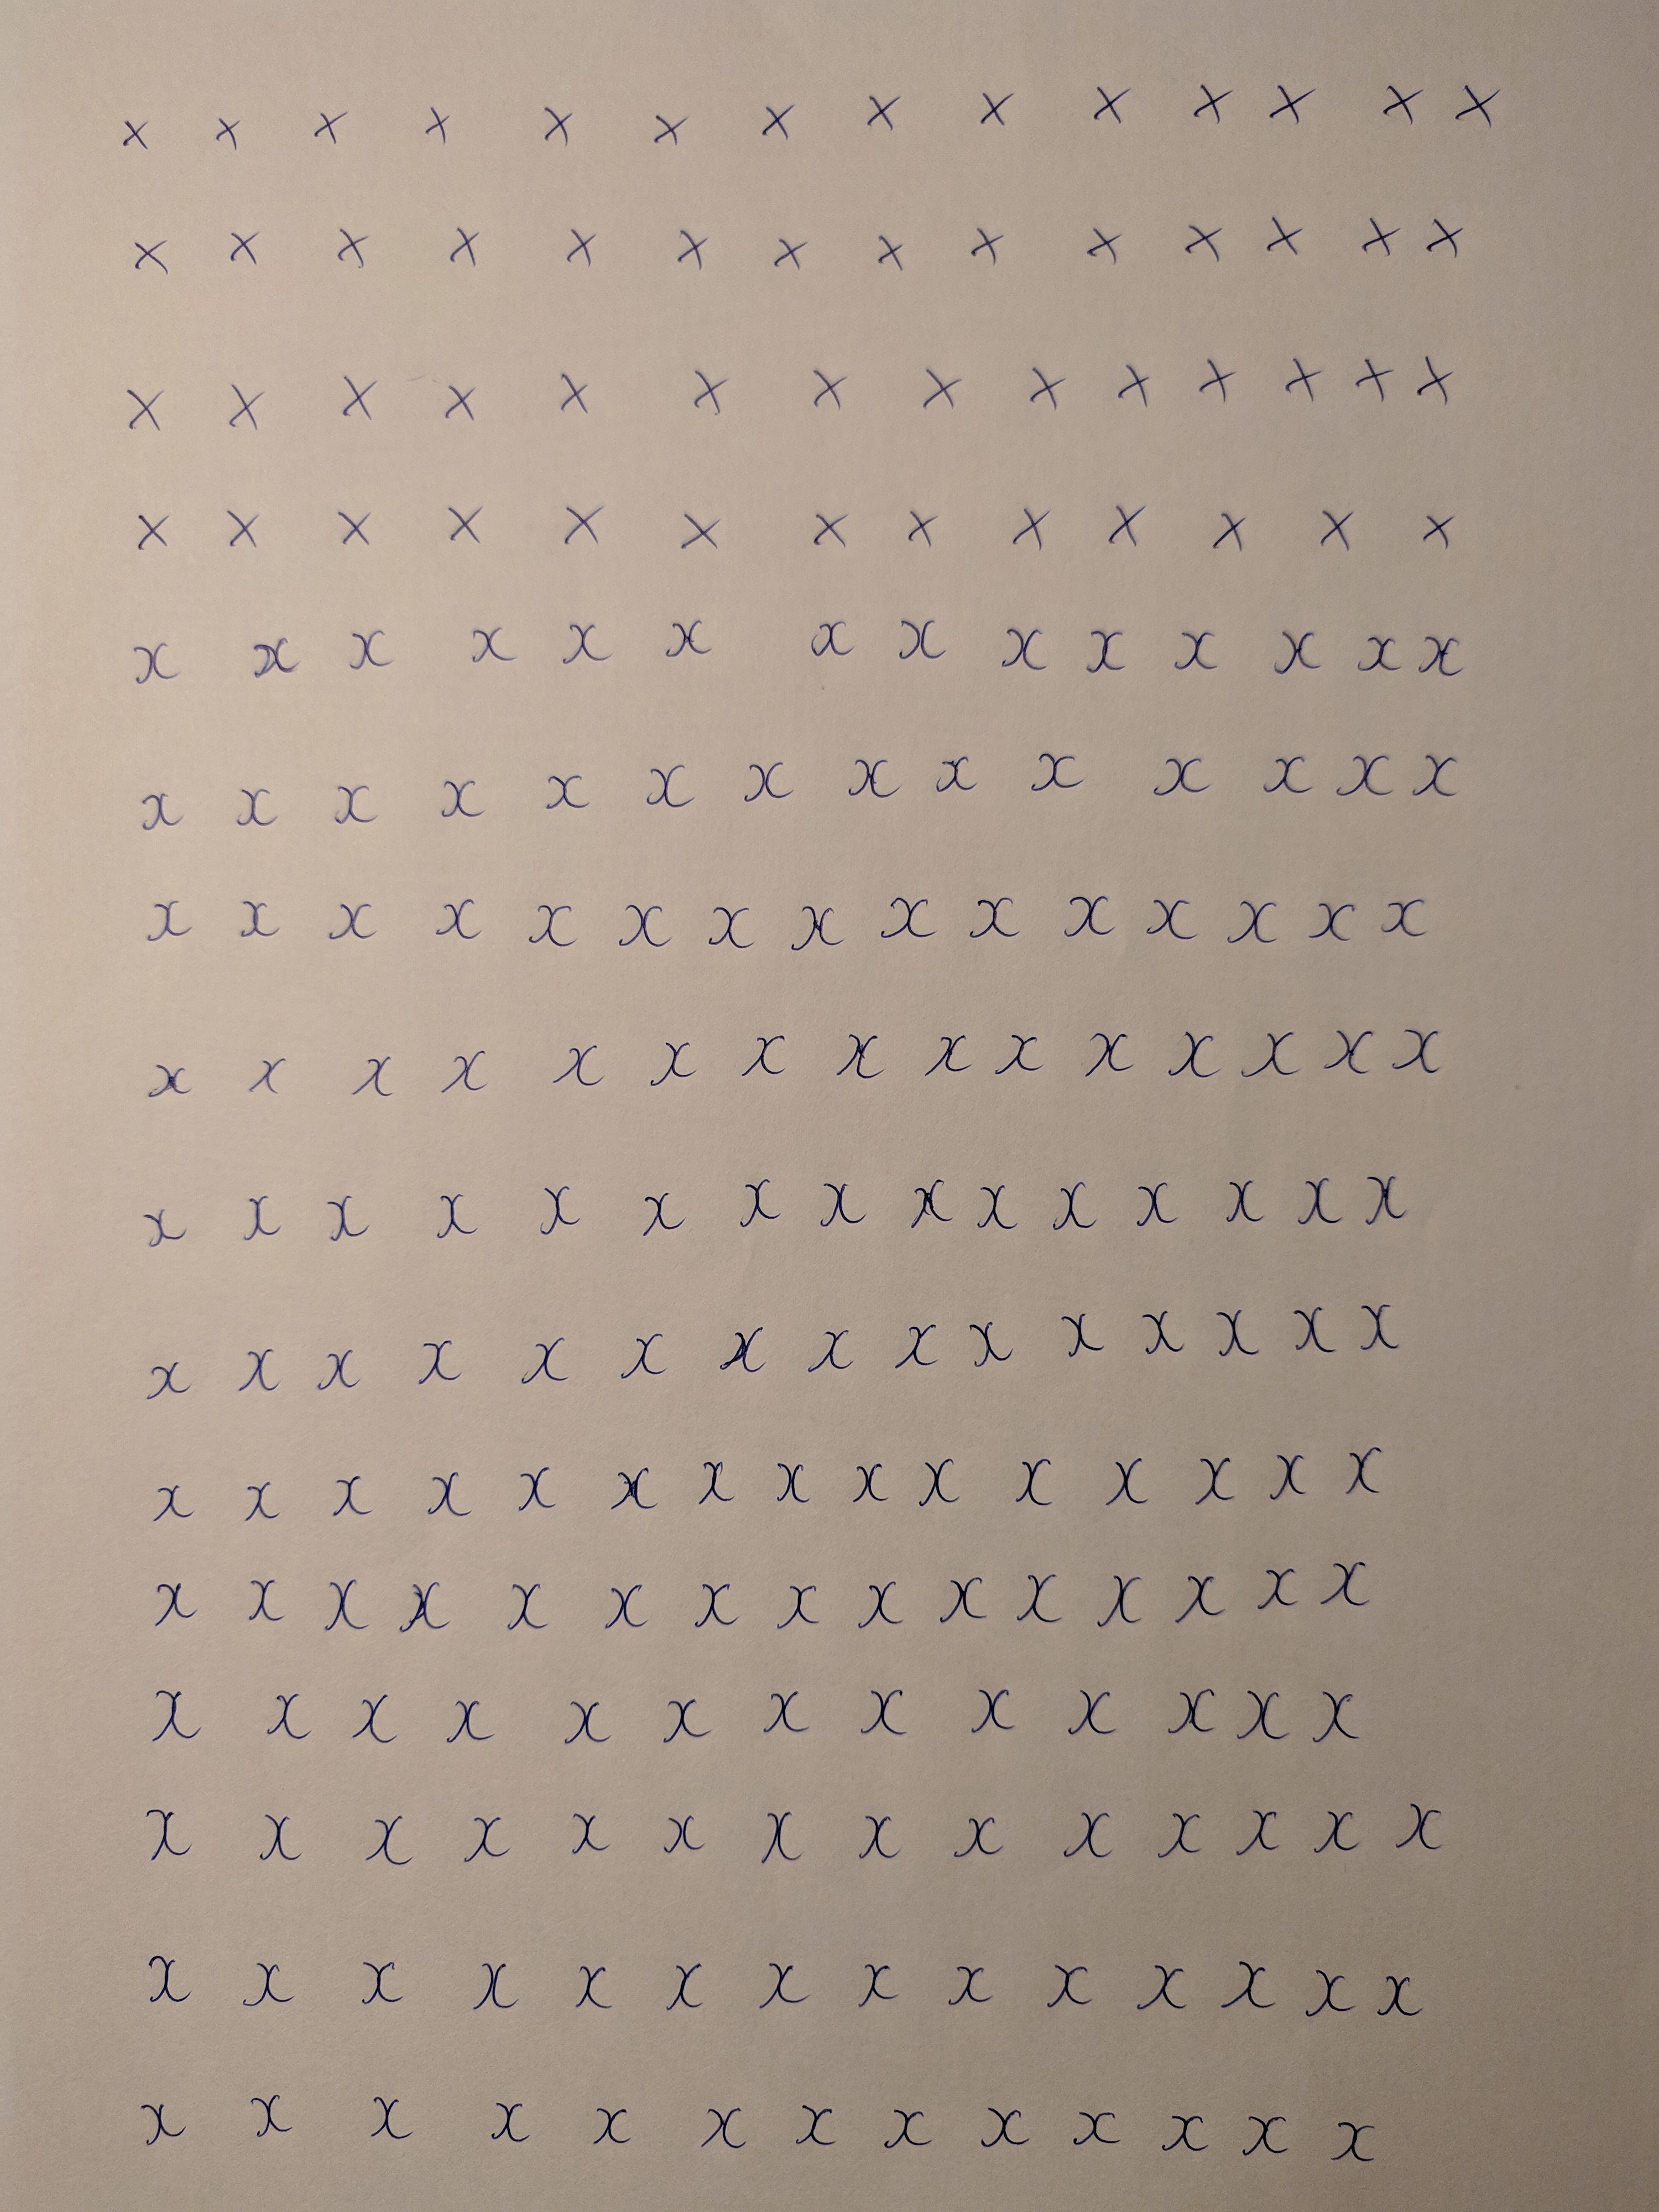 x x x x x x x x x x x x x x
x x x x x x x x x x x x x x
x x x x x x x x x x x x x x
x x x x x x x x x x x x x
x x x x x x x x x x x x x x
x x x x x x x x x x x x x x
x x x x x x x x x x x x x x x
x x x x x x x x x x x x x x x
x x x x x x x x x x x x x x x
x x x x x x x x x x x x x x x
x x x x x x x x x x x x x x x
x x x x x x x x x x x x x x x
x x x x x x x x x x x x x
x x x x x x x x x x x x x x
x x x x x x x x x x x x x x
x x x x x x x x x x x x x